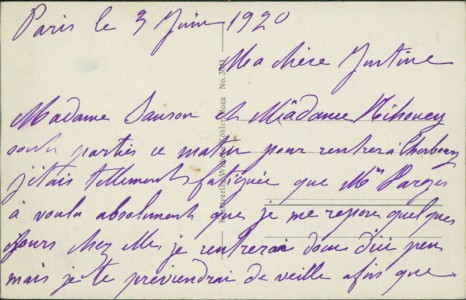 Paris le 3 Juin 1920
Ma chère Justine
Madame Sanson et Madame
sont parties ce matin pour rentrer à Cherbourg
j'étais tellement fatiguée que Mme
à voulu absolument que je me repose quelques
jours chez elle, je rentrerai donc d'ici peu
mais je te préviendrai de veille afois que
No.